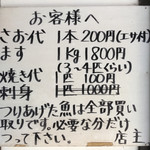 お客様へ
さお代 1本200円(エサ付)
ます 1kg1800円
(3~4匹くらい)
焼き代 1匹100円
刺身 1匹1000円
つりあげた魚は全部買い
取りです。必要な分だけ
つって下さい。 店主